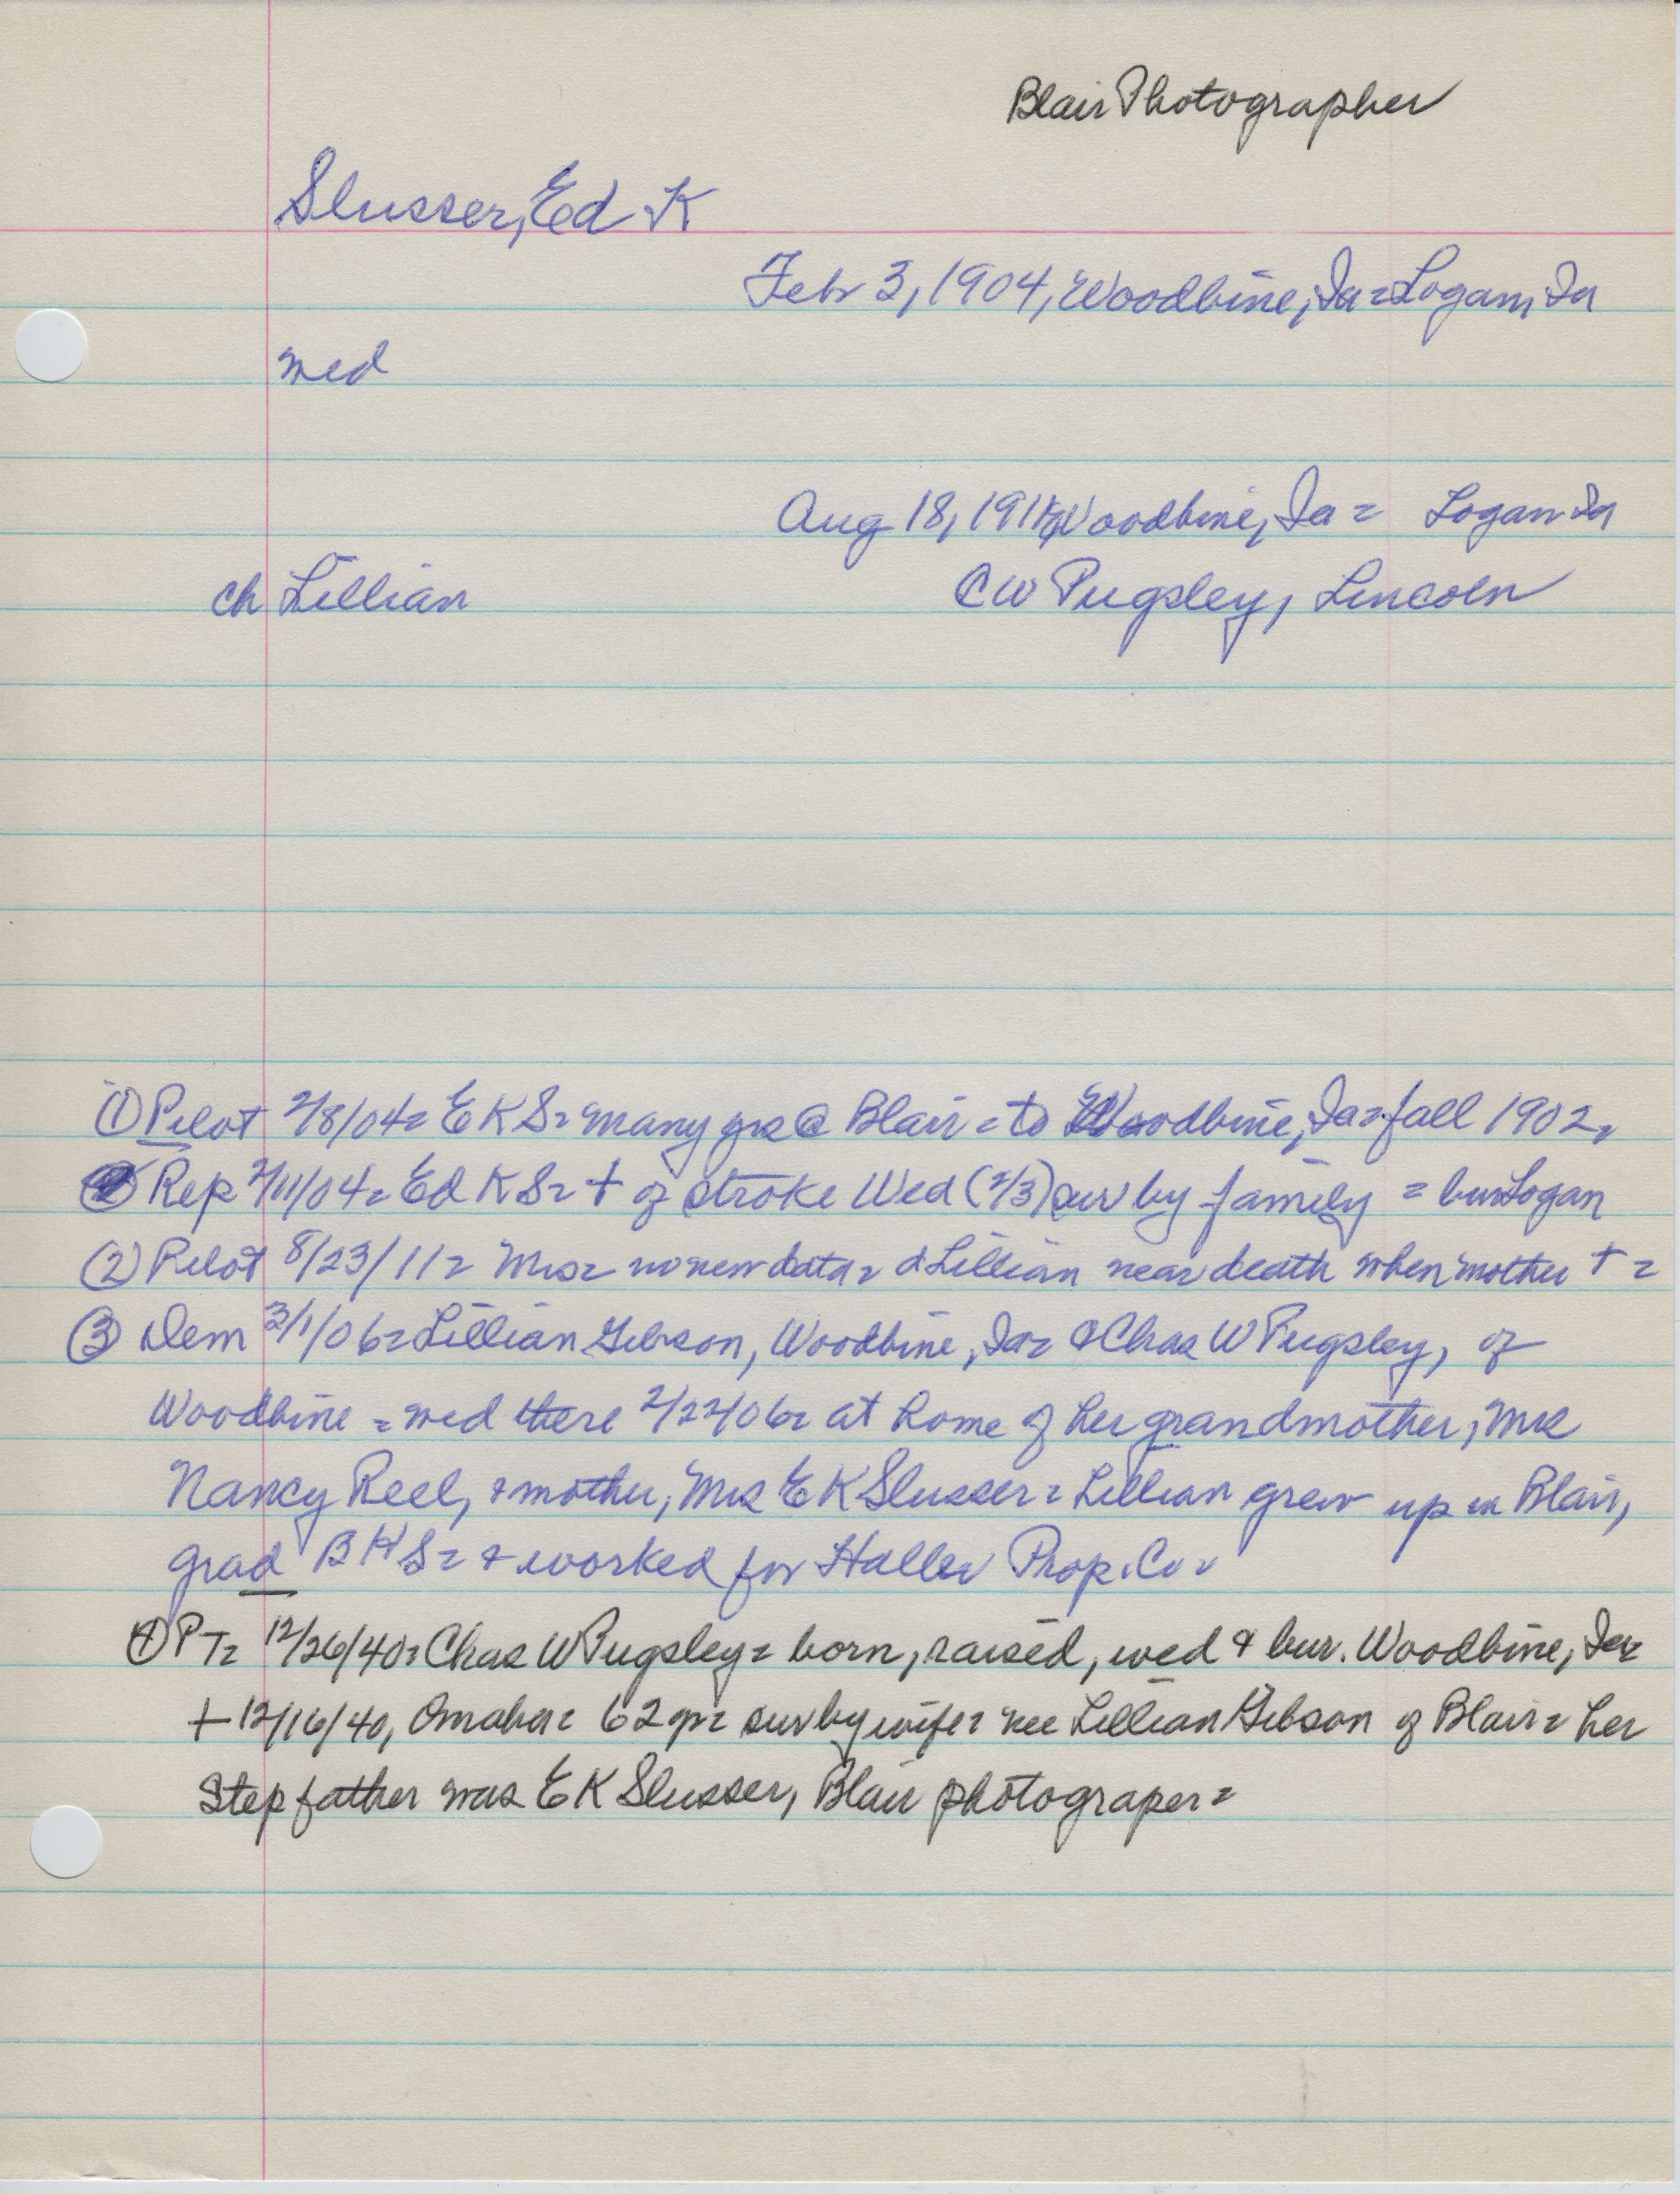 Blair Photographer
Slusser, Ed K
Feb 3, 1904, Woodbine, Ia = Logan, Ia
wed
Aug 18, 1911, Woodbine, Ia = Logan Ia
ch Lillian C W Pugsley, Lincoln
(1) Pilot 2/8/04 = E K S = many yrs @ Blair = to Woodbine, Ia = fall 1902,
Rep 2/11/04 = Ed K S = + of stroke Wed (2/3) sur by family = bur Logan
(2) Pilot 8/23/11 = Mrs = no new data = d Lillian near death when mother + =
(3) Dem 3/1/06 = Lillian Gibson, Woodbine, Ia = & Chas W Pugsley, of
Woodbine = wed there 2/22/06 = at home of her grandmother, Mrs
Nancy Reel, & mother, Mrs E K Slusser = Lillian grew up in Blair,
grad B H S = & worked for Haller Prop. Co =
(4) PT = 12/26/40 = Chas W Pugsley = born, raised, wed & bur. Woodbine, Ia =
+ 12/16/40, Omaha = 62 yr = sur by wife = nee Lillian Gibson of Blair = her
Step father was E K Slusser, Blair photograper =